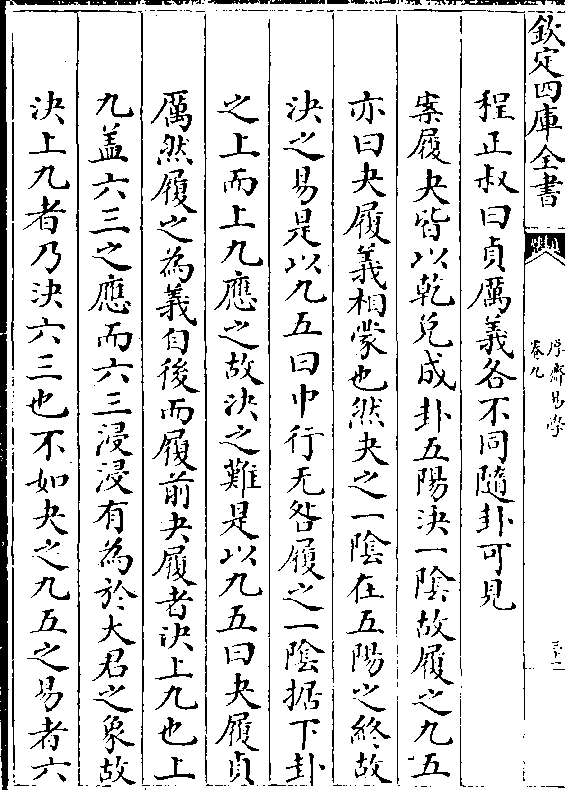 欽定四庫全書
厚齋易學
卷九
程正叔曰貞厲義各不同隨卦可見
案履夬皆以乾兌成卦五陽決一陰故履之九五
亦曰夬履義相蒙也然夬之一陰在五陽之終故
決之易是以九五曰中行无咎履之一陰據下卦
之上而上九應之故決之難是以九五曰夬履貞
厲然履之為義自後而履前夬履者決上九也上
九盖六三之應而六三浸浸有為於大君之象故
決上九者乃決六三也不如夬之九五之易者六